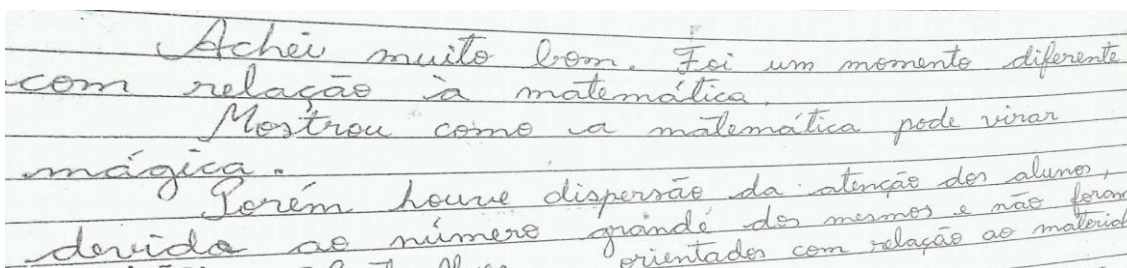 Achei muito bom. Foi um momento diferente
com relação à matemática.
Mostrou como a matemática pode virar
mágica.
Porém houve dispersão da atenção dos alunos,
devido ao número grande dos mesmos e não foram
orientados com relação ao material